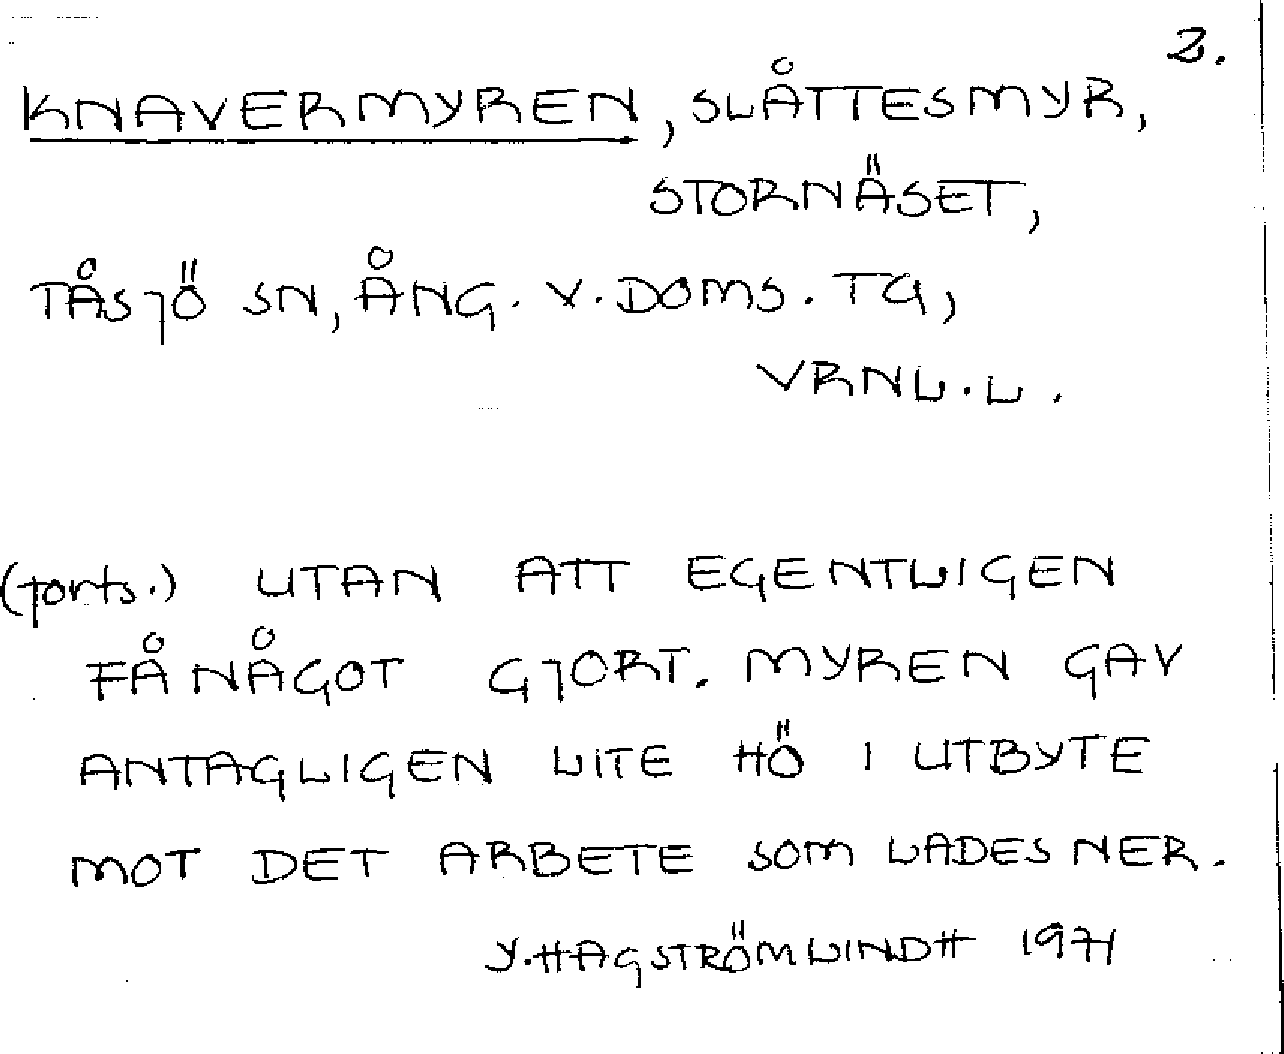 2.
KNAVERMYREN, SLÅTTESMYR,
STORNÄSET,
TÅSJÖ SN, ÅNG. V. DOMS. TG,
VRNL. L.
(forts.) UTAN ATT EGENTLIGEN
FÅ NÅGOT GJORT. MYREN GAV
ANTAGLIGEN LITE HÖ I UTBYTE
MOT DET ARBETE SOM LADES NER.
Y. HAGSTRÖM LINDH 1971